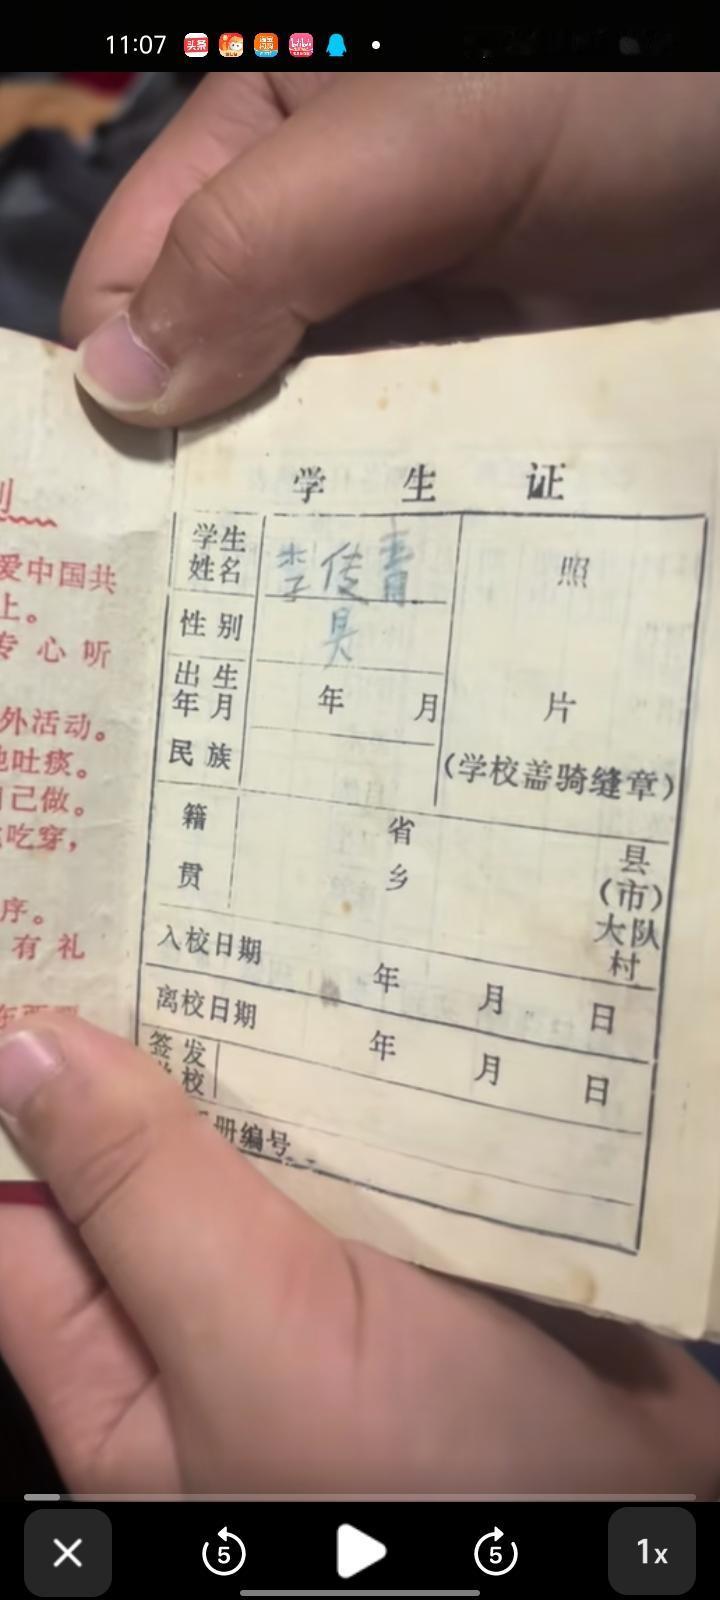 11:07
头条
学 生 证
学生
姓名
李传青
照
性别
男
出生
年月
年 月
片
民族
(学校盖骑缝章)
籍
贯
省
乡
县
(市)
大队
村
入校日期
年 月 日
离校日期
年 月 日
签发
校
册编号
爱中国共
上。
专心听
外活动。
地吐痰。
自己做。
吃穿，
序。
有礼
5
5
1x